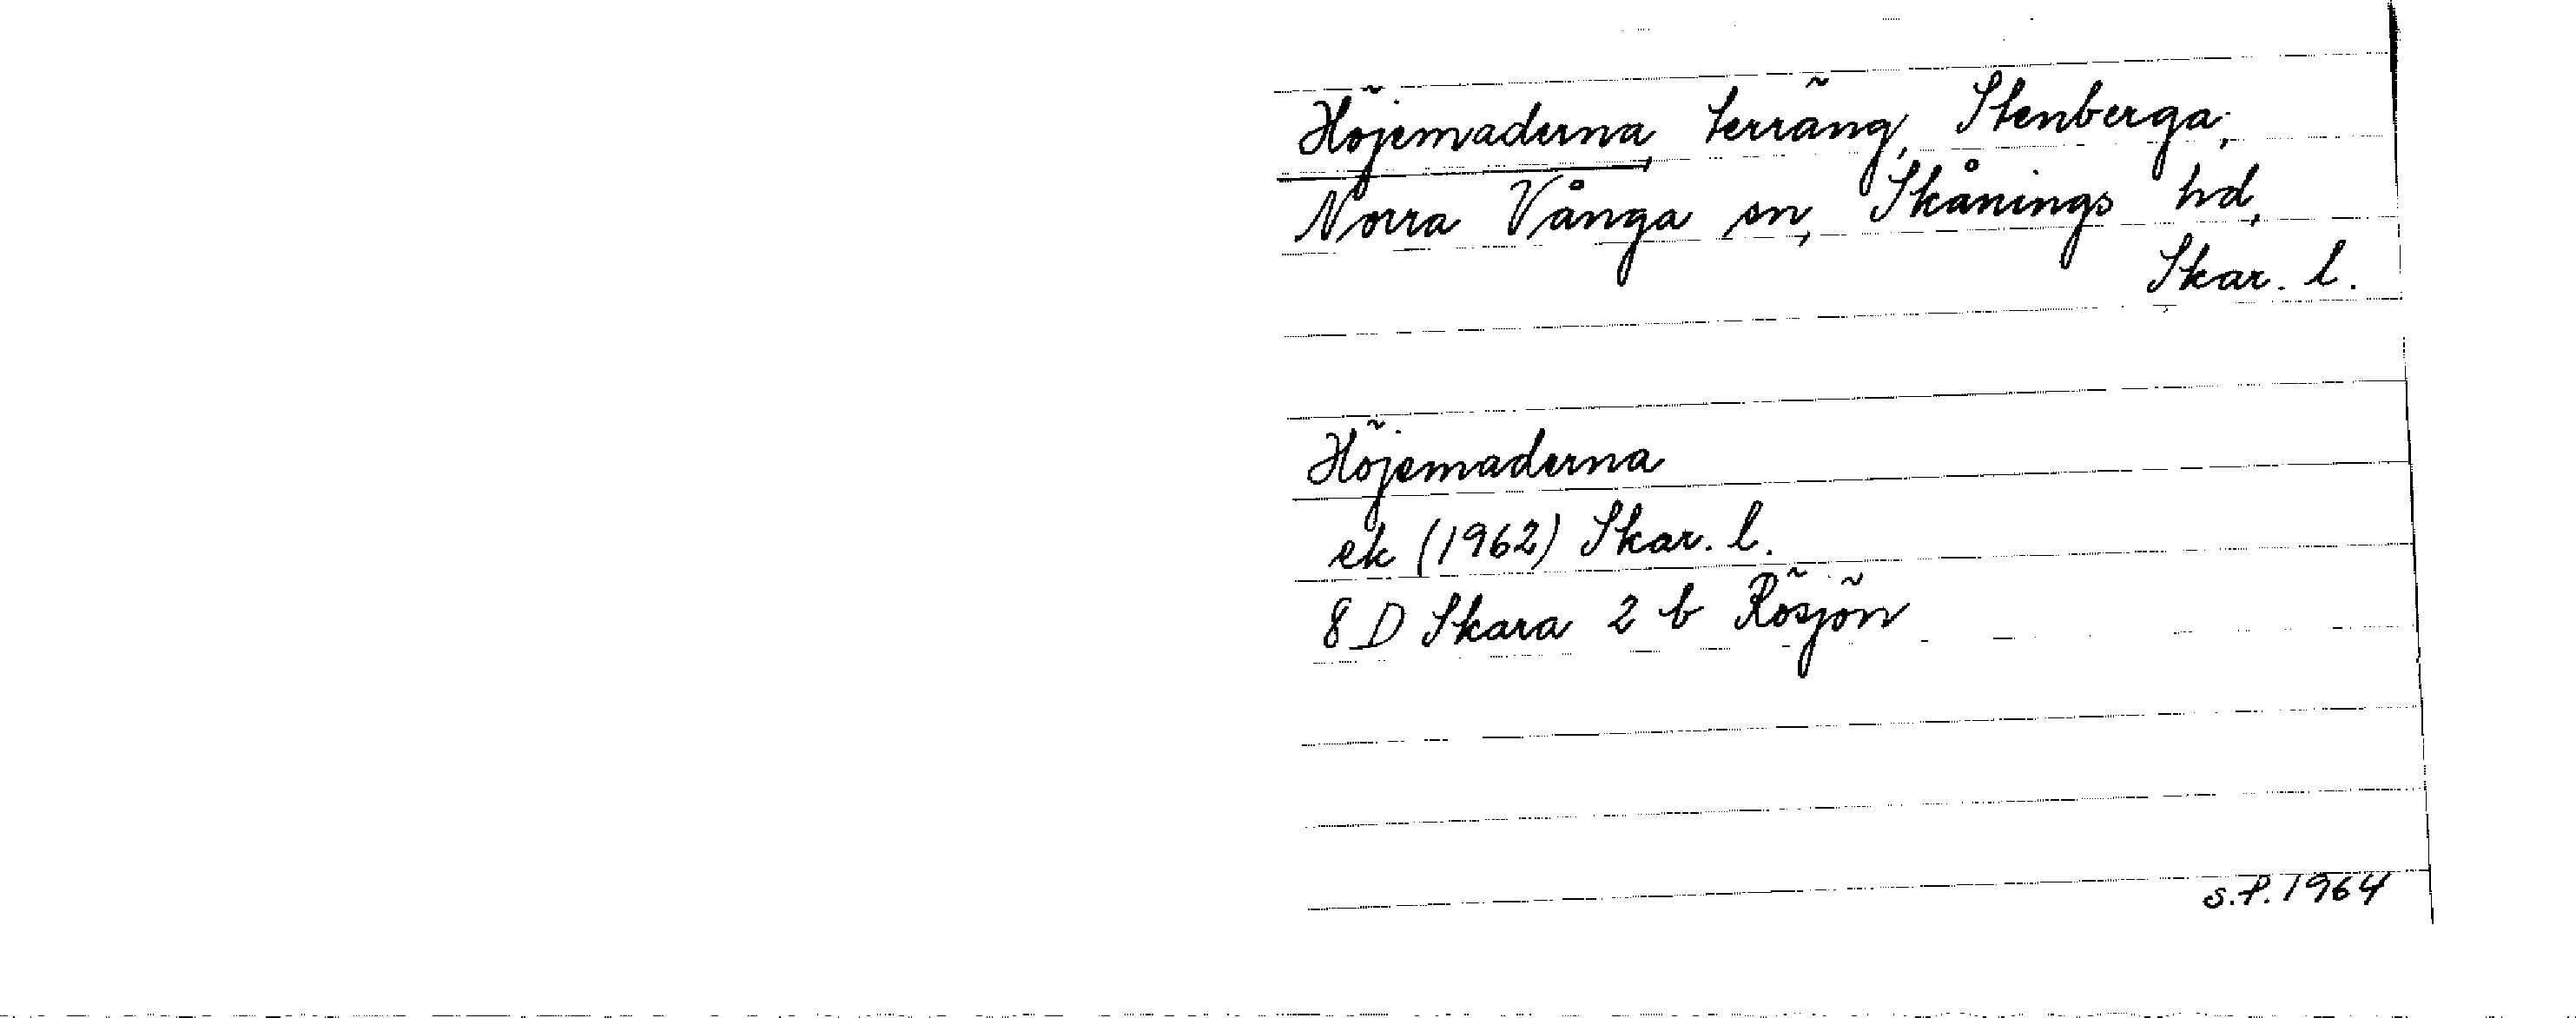 Höjemaderna, terräng, Stenberga,
Norra Vånga sn, Skånings hd,
Skar. l.
Höjemaderna
ek (1962) Skar. l.
8 D Skara 2 b Rösjön
S.P. 1964